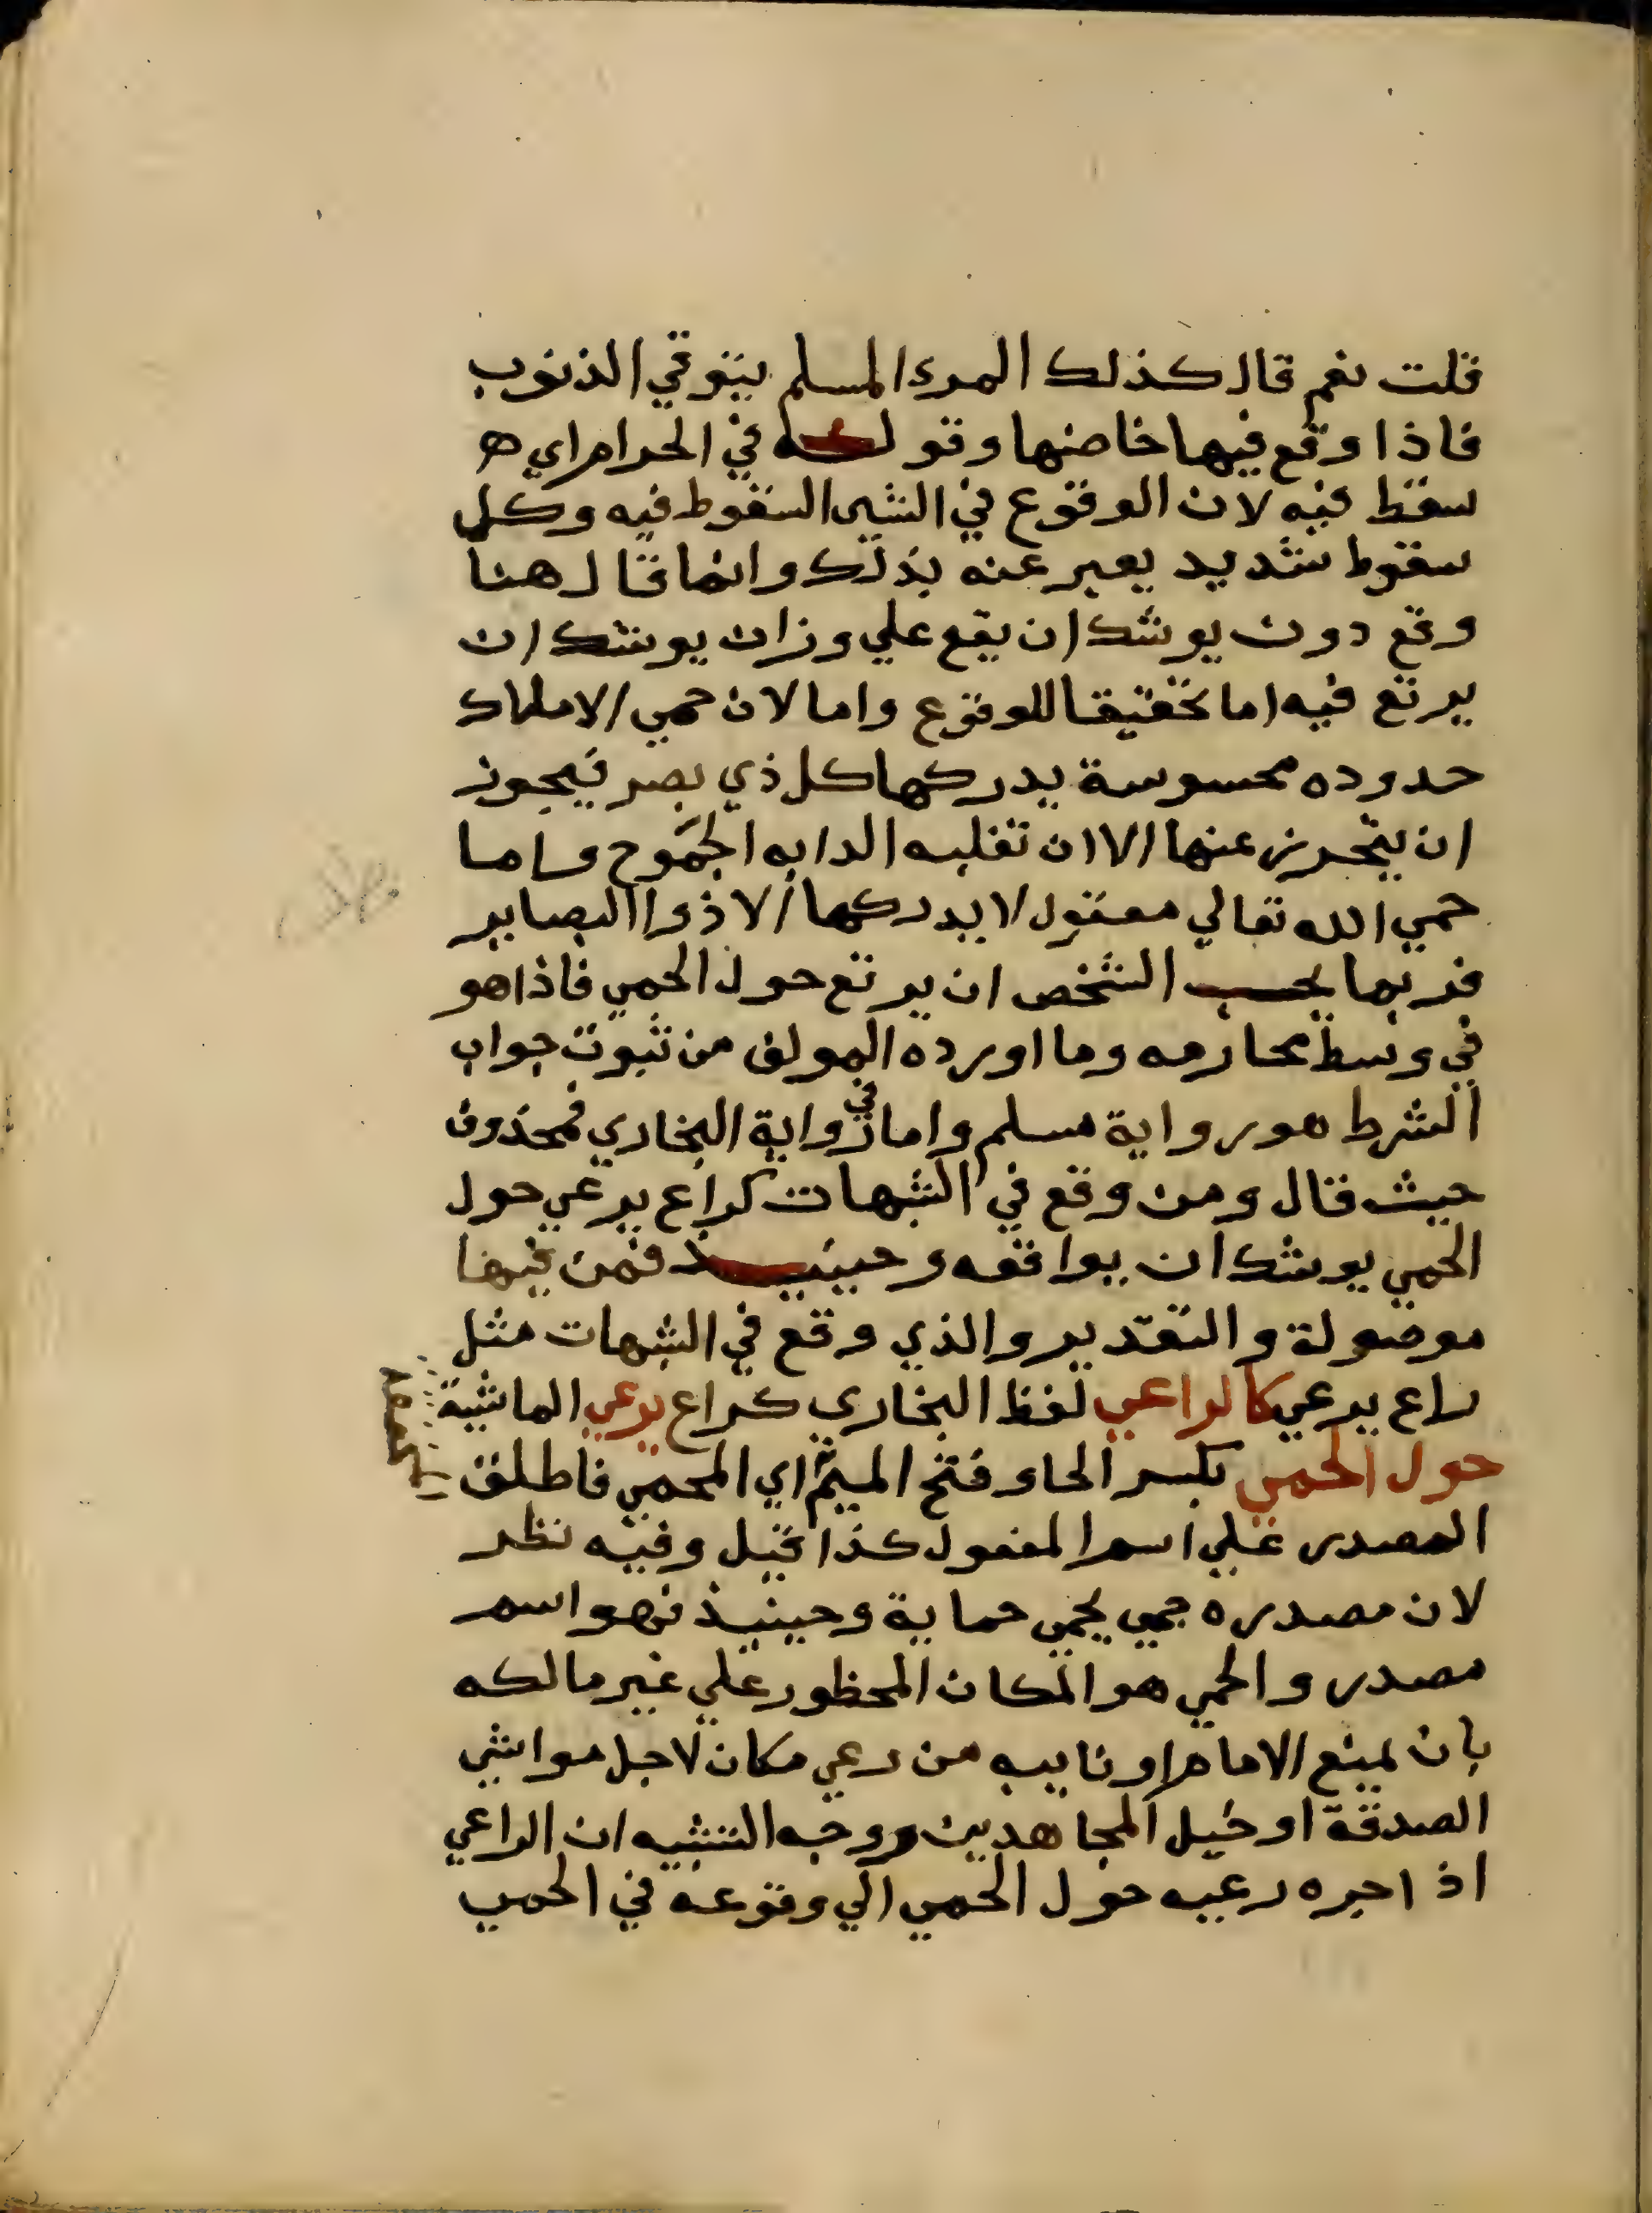 قلت نعم قال كذلك المرء المسلم يتوقي الذنوب
فاذا وقع فيها خاضها وقوله في الحرام اي
سقط فيه لان الوقوع في الشي السقوط فيه وكل
سقوط شديد يعبر عنه بذلك وانما قال هنا
وقع دون يوشك ان يقع علي وزان يوشك ان
يرتع فيه اما تحقيقا للوقوع واما لان حمي الاملاك
حدوده محسوسة يدركها كل ذي بصر فيجوز
ان يتحرز عنها الا ان تغلبه الدابه الجموح واما
حمي الله تعالي معقول لا يدركها الا ذوا البصاير
فربما يحسب الشخص ان يرتع حول الحمي فاذا هو
في وسط محارمه وما اورده المولف من ثبوت جواب
الشرط هو رواية مسلم واما في رواية البخاري فمحذوف
حيث قال ومن وقع في الشبهات كراع يرعي حول
الحمي يوشك ان يواقعه وحينيذ فمن فيها
موصولة والتقدير والذي وقع في الشبهات مثل
راع يرعي كالراعي لفظ البخاري كراع يرعي الماشية
حول الحمي بكسر الحا وفتح الميم اي المحمي فاطلق
المصدر علي اسم المفعول كذا قيل وفيه نظر
لان مصدره حمي يحمي حماية وحينيذ فهو اسم
مصدر والحمي هو المكان المحظور علي غير مالكه
بان يمنع الامام او نايبه من رعي مكان لاجل مواشي
الصدقة او خيل المجاهدين ووجه التشبيه ان الراعي
اذ اجره رعيه حول الحمي الي وقوعه في الحمي